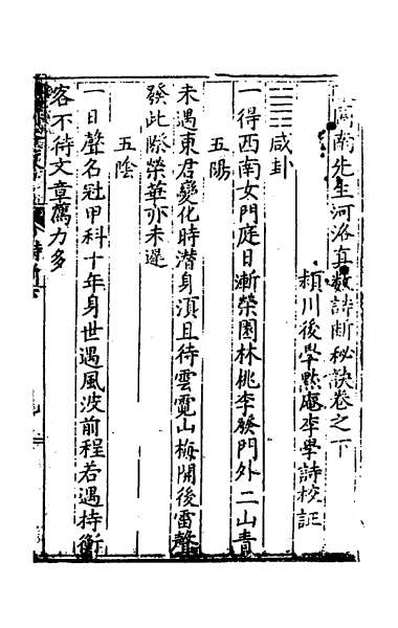 圖南先生河洛真數詩斷秘訣卷之下
潁川後學默庵李學詩校証
䷞咸卦
一得西南女門庭日漸榮園林桃李發門外二山青
五陽
未遇東君變化時潜身須且待雲霓山梅開後雷聲
發此際榮華亦未遲
五陰
一日聲名冠甲科十年身世遇風波前程若遇持衡
客不待文章薦力多